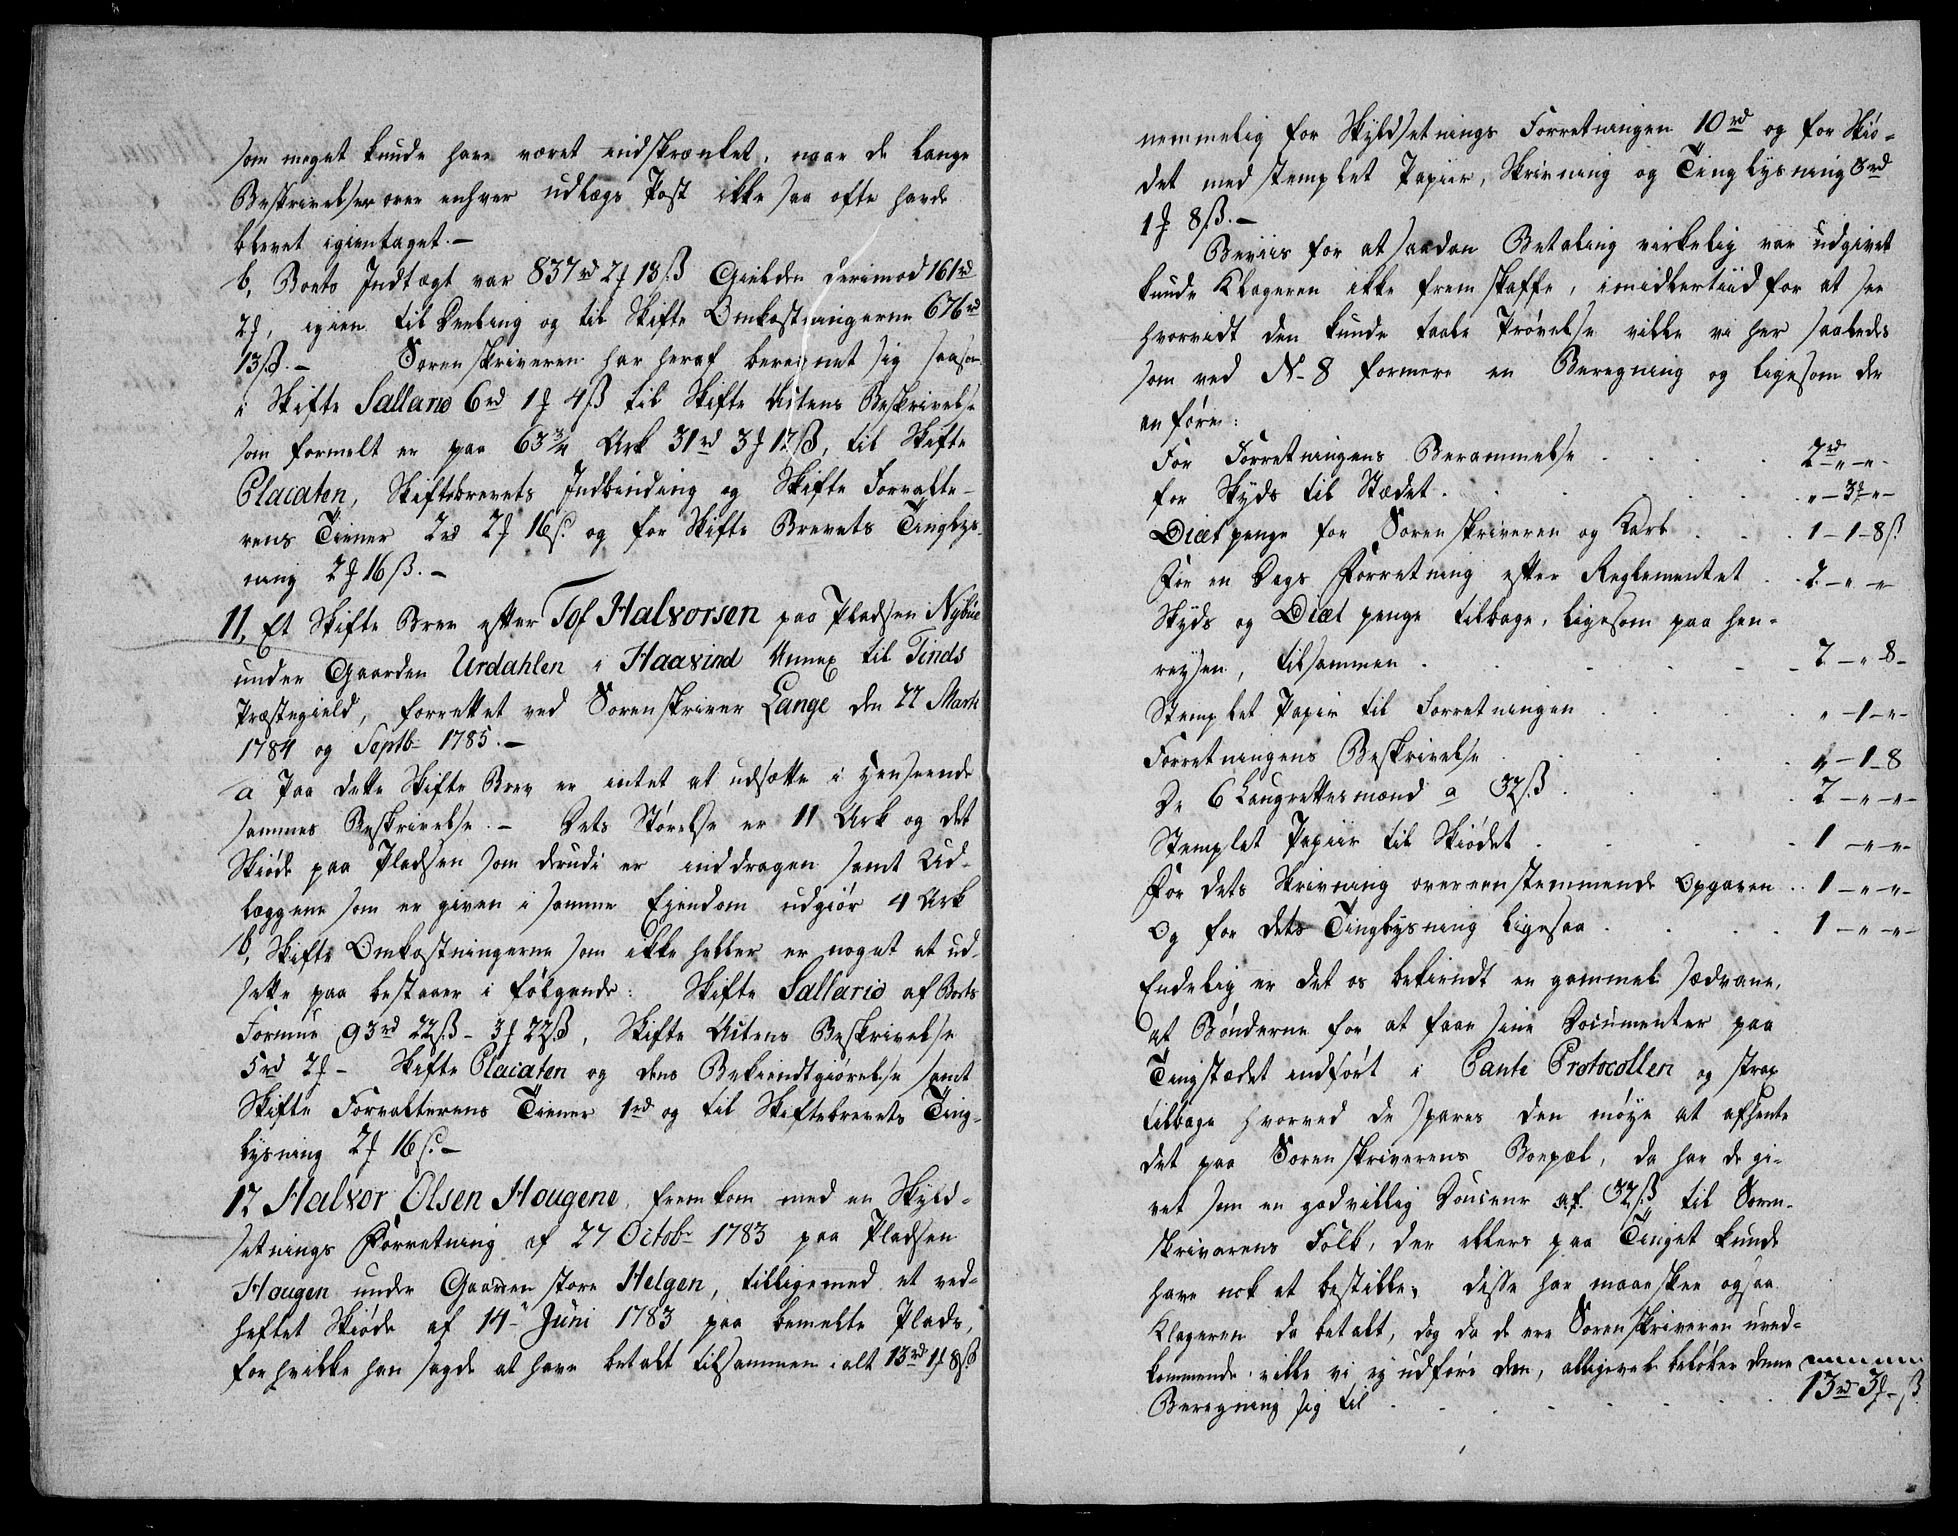 som meget kunde have været indskrænket, naar de lange
Beskrivelser over enhver udlægs Post ikke saa ofte havde
blevet igientaget. –
b, Boets Indtægt var 837rd 2f 13ß Gielden derimod 161rd
2f, igien til Deeling og til Skifte Omkostningerne 676rd
13ß. – Sorenskriveren har heraf beregnet sig saasom
i Skifte Sallario 6rd 1f 4ß til Skifte Actens Beskrivelse
som formelt er paa 63¾ Ark 31rd 3f 12ß, til Skifte
Placaten, Skiftebrevets Indbinding og Skifte Forvalte-
rens Tiener 2rd 2f 16ß. og for Skifte Brevets Tinglys-
ning 2f 16ß. –
11, Et Skifte Brev efter Tof Halvorsen paa Pladsen Nybue
under Gaarden Urdahlen i Haavind Annex til Tinds
Præstegield, forrettet ved Sorenskriver Lange den 22 Martii
1784 og Septb. 1785. –
a Paa dette Skifte Brev er intet at udsætte i Henseende
sammes Beskrivelse. – Dets Störelse er 11 Ark og det
Skiöde paa Pladsen som derudi er inddragen samt Ud-
læggene som er given i samme Eiendom udgiör 4 Ark
b, Skifte Omkostningerne som ikke heller er noget at ud-
sette paa bestaaer i fölgende: Skifte Sallario af Boets
Formue 93rd 22ß – 3f 22ß, Skifte Actens Beskrivelse
5rd 2f – Skifte Placaten og dens Bekiendtgiörelse samt
Skifte Forvalterens Tiener 1rd og til Skiftebrevets Ting-
lysning 2f 16ß. –
12 Halvor Olsen Hougene, fremkom med en Skyld-
setnings Forretning af 27 Octobr 1783 paa Pladsen
Haugen under Gaarden store Helgen, tilligemed et ved-
heftet Skiöde af 14 Juni 1783 paa bemelte Plads,
for hvilke han sagde at have betalt tilsammen i alt 13rd 1f 8ß
nemmelig for Skyldsetnings Forretningen 10rd og for Skiö-
det med stemplet Papiir, Skrivning og Tinglysning 3rd
1f 8ß. –
Beviis for at saadan Betaling virkelig var udgivet
kunde Klageren ikke fremskaffe, imidlertiid for at see
hvorvidt den kunde taale Prövelse ville vi her saaledes
som ved N- 8 formere en Beregning og ligesom der
anföre:
For Forretningens Berammelse . . . 2rd – „ – „ –
for Skyds til Stædet . . . „ – 3f – „ –
Diætpenge for Sorenskriveren og Karl . . . 1 – 1 – 8ß
For en Dags Forretning efter Reglementet . . 2 – „ – „
Skyds og Diæt penge tilbage, ligesom paa hen-
reysen, tilsammen . . . 2 – „ 8 –
Stemplet Papir til Forretningen . . . „ – 1 – „ –
Forretningens Beskrivelse . . . „ – 1 – 8
De 6 Laugrettesmænd a 32ß . . . 2 – „ – „ –
Stemplet Papiir til Skiödet . . . 1 – „ – „ –
For dets Skrivning overeenstemmende Opgaven . . 1 – „ – „ –
Og for dets Tinglysning ligesaa . . . 1 – „ – „ –
Endelig er det os bekiendt en gammel Sædvane,
at Bönderne for at faae sine Documenter paa
Tingstædet indfört i Pante Protocollen og strax
tilbage hvorved de spares den möye at afhente
det paa Sorenskriverens Boepæl, da har de gi-
vet som en godvillig Douceur af 32ß til Soren-
skriverens Folk, der ellers paa Tinget kunde
have nok at bestille, disse har maaskee ogsaa
Klageren da betalt, dog da de ere Sorenskriveren uved-
kommende ville vi ej udföre dem, alligevel belöber denne
Beregning sig til . . . 13rd 3f – ß